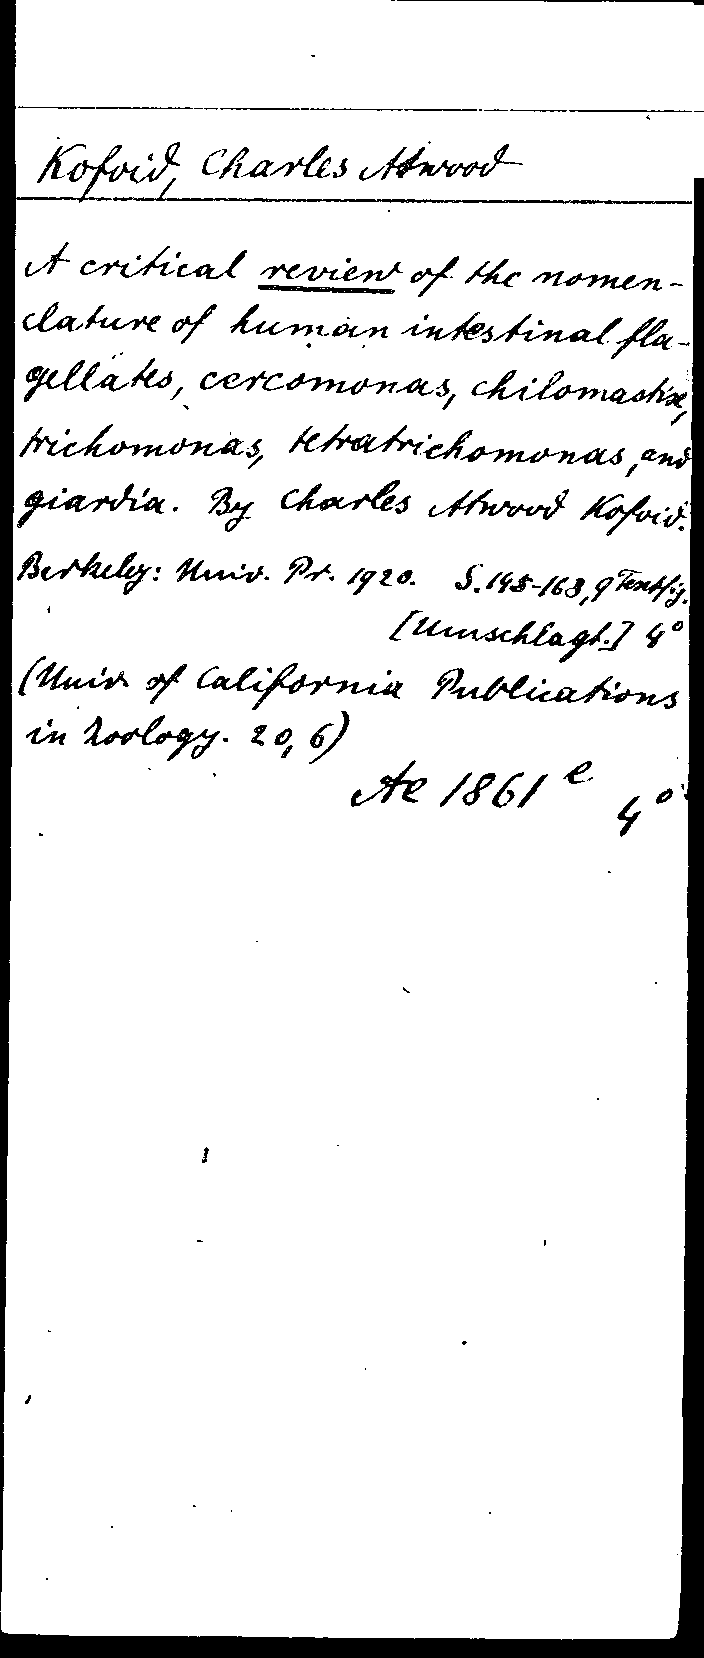 Kofoid, Charles Atwood
A critical review of the nomen-
clature of human intestinal fla-
gellates, cercomonas, chilomastix,
trichomonas, tetratrichomonas, and
giardia. By Charles Atwood Kofoid.
Berkeley: Univ. Pr. 1920. S. 145-168, 9 Textfig.
[Umschlagt.] 4°
(Univ. of California Publications
in Zoology. 20, 6)
Ae 1861 e 4°